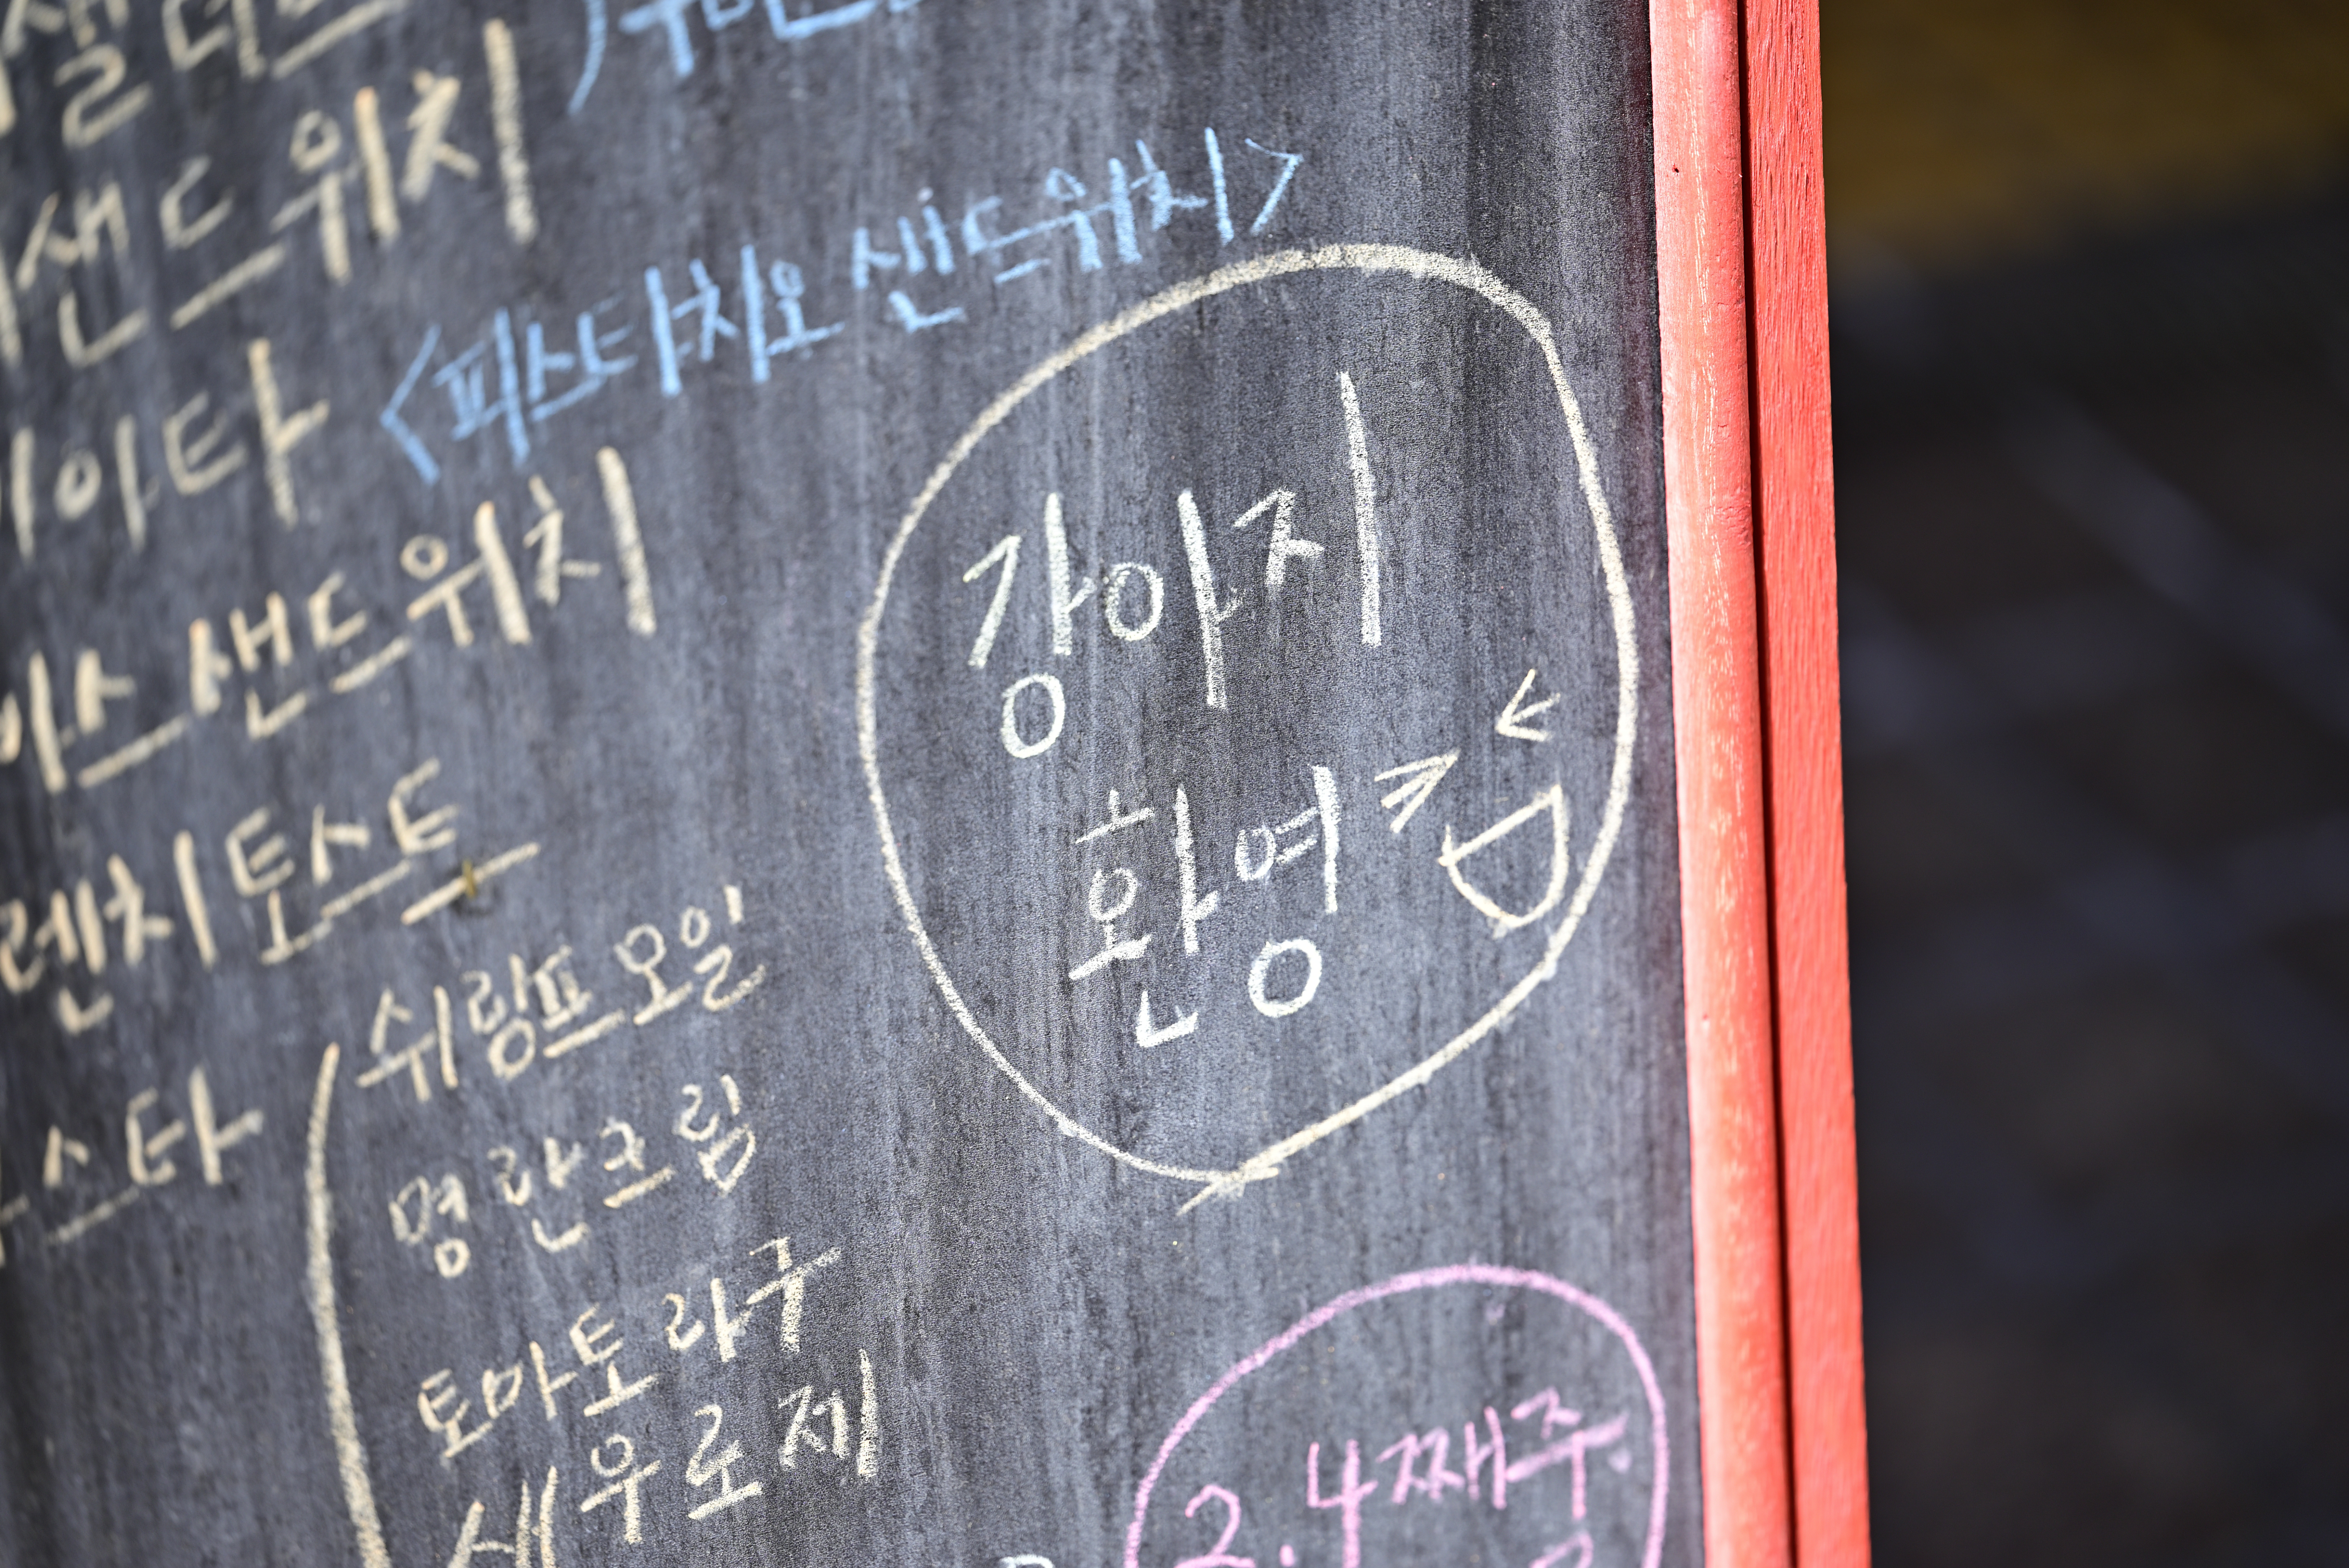 샐러드
샌드위치
<피스타치오 샌드위치>
아스 샌드위치
렌치토스트
스타
쉬림프오일
명란크림
토마토라구
새우로제
강아지
환영
2.4째주